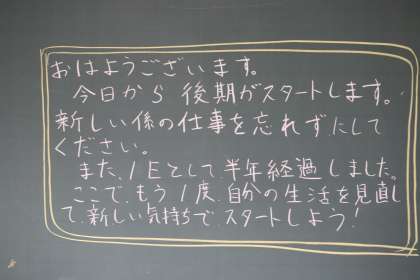 おはようございます。
今日から 後期がスタートします。
新しい係の仕事を忘れずにして
ください。
また、1Eとして、半年経過しました。
ここで、もう1度、自分の生活を見直し
て、新しい気持ちで、スタートしよう!